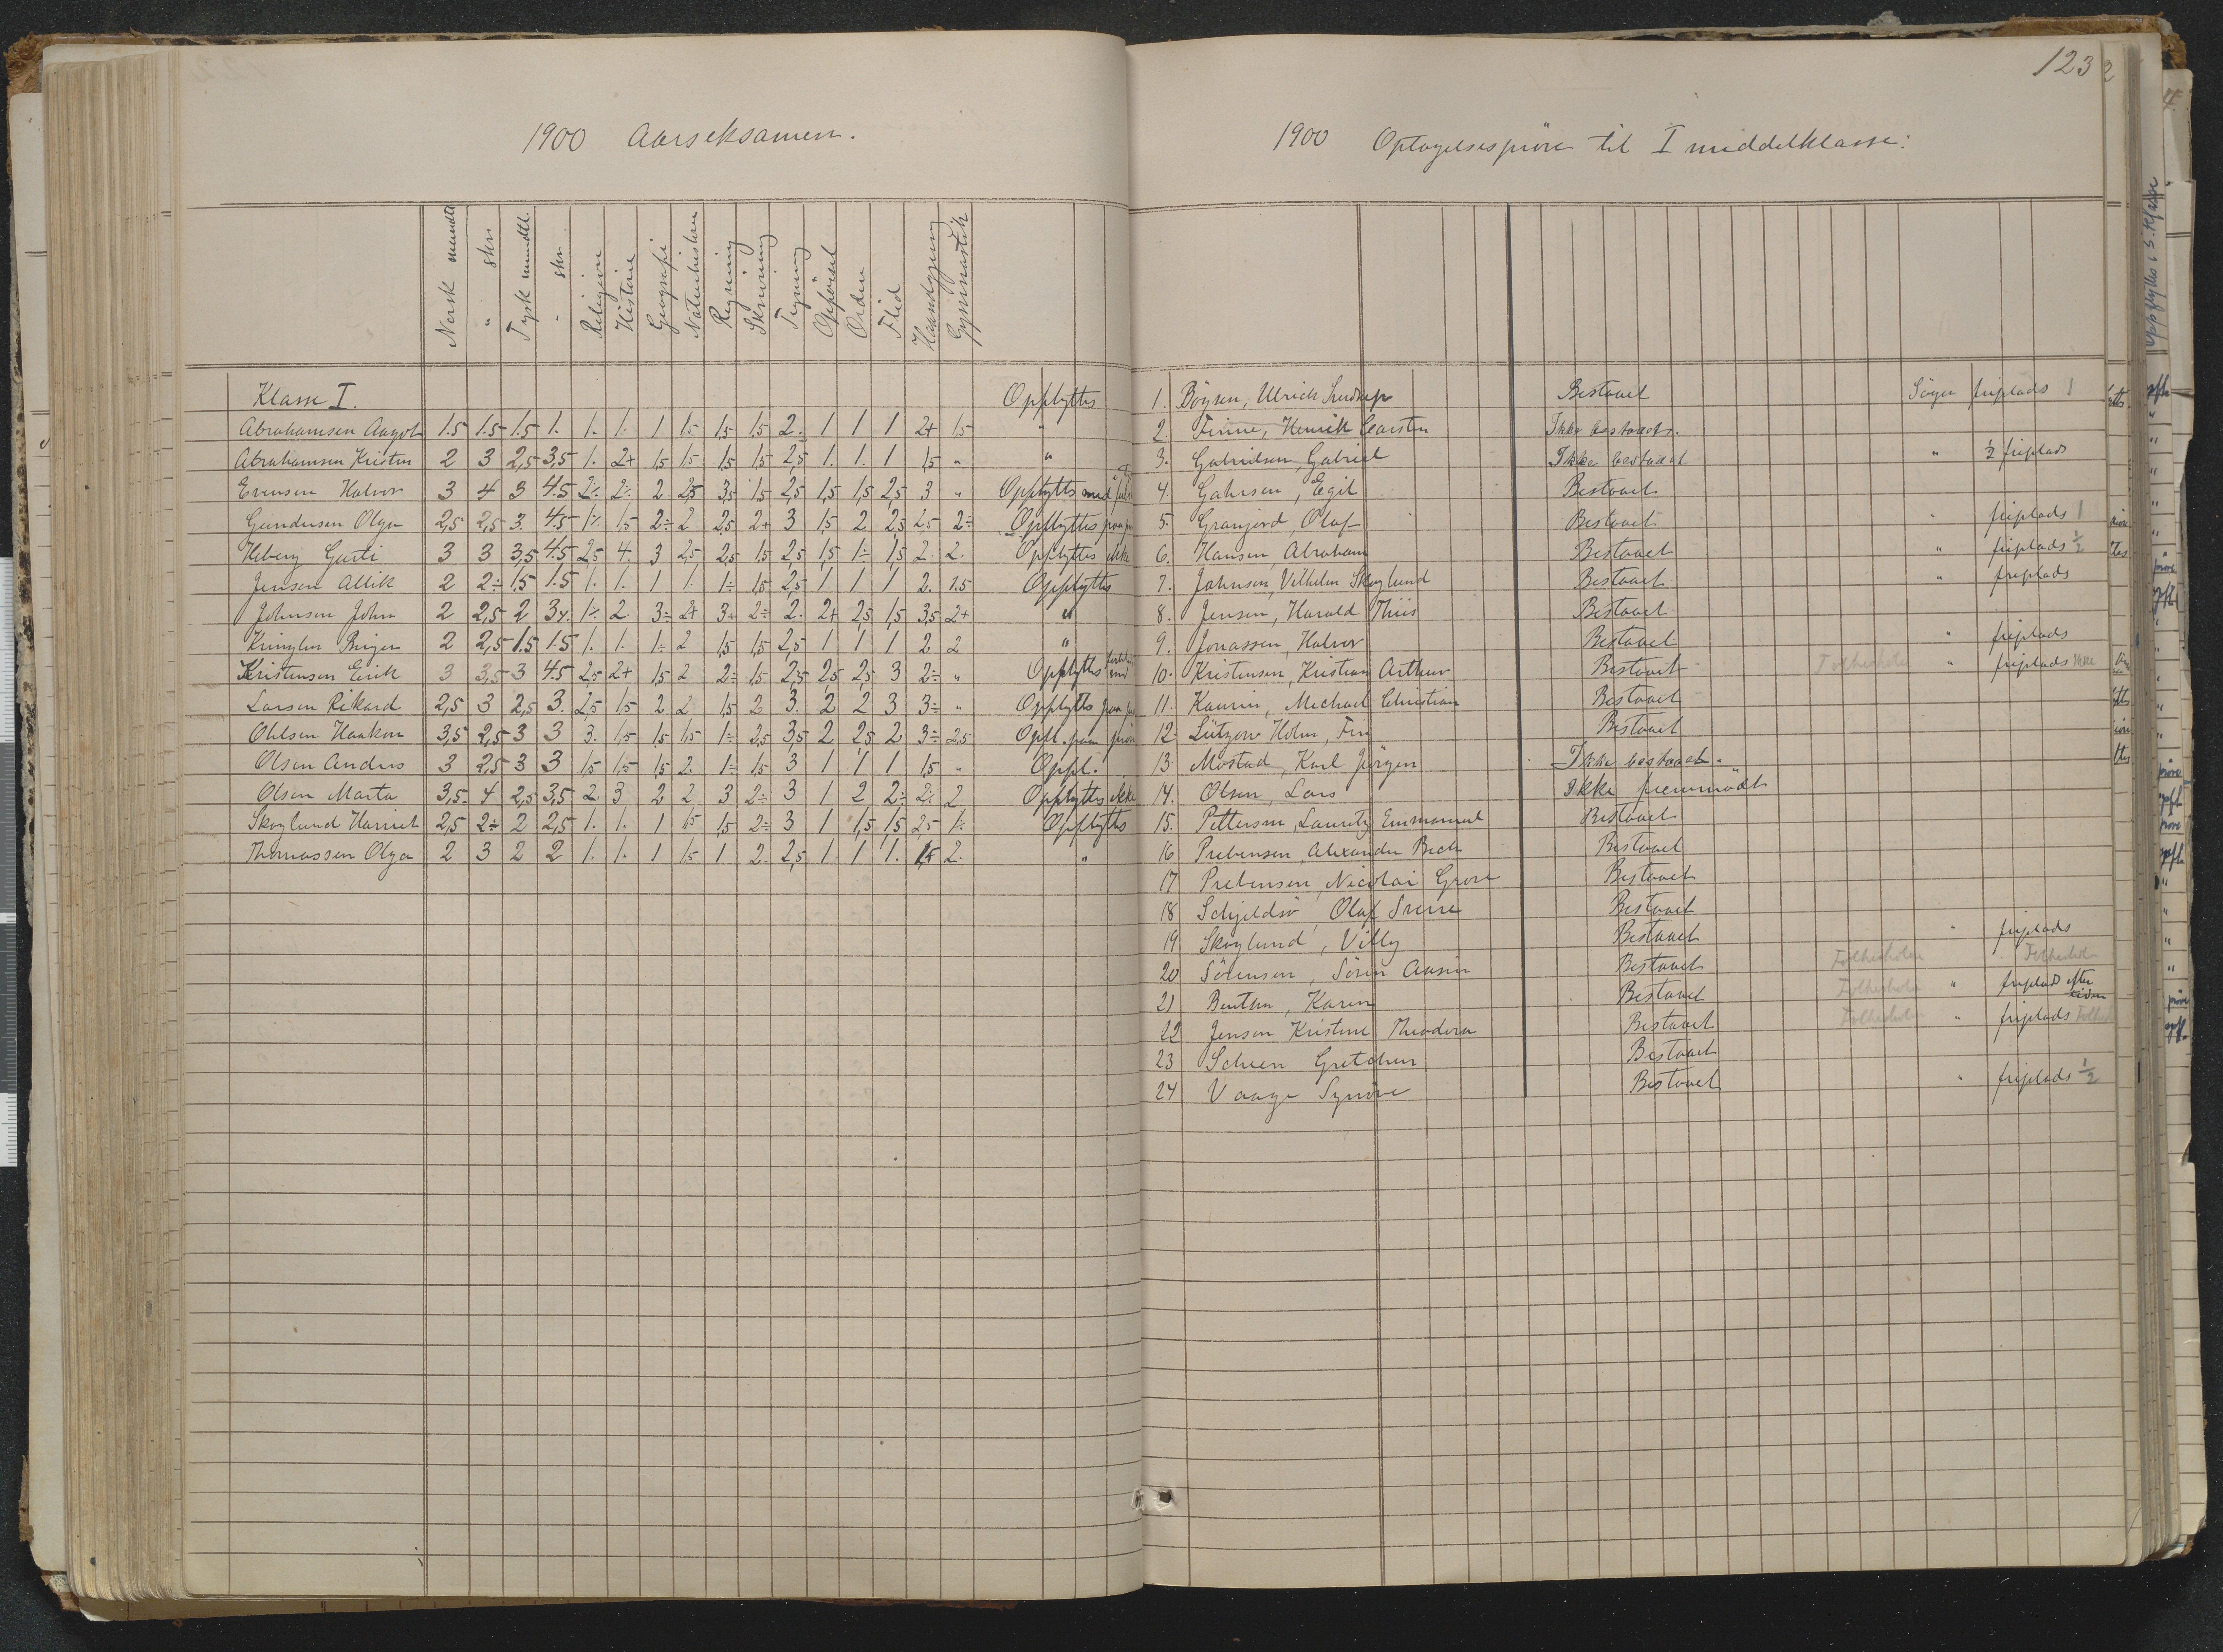 1900 Aarseksamen.
Norsk mundtl. " skr. Tysk mundtl. " skr. Religion Historie Geografi Naturhistorie Regning Skrivning Tegning Opførsel Orden Flid Haandgjerning Gymnastik
Klasse I. Opflyttes
Abrahamsen Aagot 1.5 1.5 1.5 1. 1. 1. 1 1.5 1,5 1,5 2. 1 1 1 2+ 1,5 "
Abrahamsen Kristen 2 3 2,5 3,5 1. 2+ 1,5 1,5 1,5 1,5 2,5 1. 1. 1 1,5 " "
Evensen Halvor 3 4 3 4.5 2÷ 2÷ 2 2,5 3,5 1,5 2,5 1,5 1,5 2,5 3 " Opflyttes med
Gundersen Olga 2,5 2,5 3. 4.5 1÷ 1,5 2÷ 2 2,5 2+ 3 1,5 2 2,5 2,5 2÷ Opflyttes paa
Iberg Gusti 3 3 3,5 4.5 2,5 4. 3 2,5 2,5 1,5 2,5 1,5 1÷ 1,5 2. 2. Opflyttes ikke
Jensen Allik 2 2÷ 1.5 1.5 1. 1. 1 1. 1÷ 1,5 2,5 1 1 1 2. 1.5 Opflyttes
Johnsen John 2 2,5 2 3÷ 1÷ 2. 3÷ 2+ 3+ 2÷ 2. 2+ 2,5 1,5 3,5 2+ "
Kringlen Birger 2 2,5 1.5 1.5 1. 1. 1÷ 2 1,5 1,5 2,5 1 1 1 2 2 "
Kristensen Erik 3 3,5 3 4.5 2,5 2+ 1,5 2 2÷ 1,5 2,5 2,5 2,5 3 2÷ " Opflyttes med
Larsen Rikard 2,5 3 2,5 3. 2,5 1,5 2 2 1,5 2 3. 2 2 3 3÷ " Opflyttes paa
Ohlsen Haakon 3,5 2,5 3 3 3. 1,5 1,5 1,5 1÷ 2,5 3,5 2 2,5 2 3÷ 2,5 Opfl. paa prøve
Olsen Anders 3 2,5 3 3 1,5 1,5 1,5 2. 1÷ 1,5 3 1 1 1 1,5 " Oppl.
Olsen Marta 3,5 4 2,5 3,5 2 3 2 2 3 2÷ 3 1 2 2÷ 2÷ 2 Opflyttes ikke
Skoglund Harriet 2,5 2÷ 2 2,5 1. 1. 1 1,5 1,5 2÷ 3 1 1,5 1,5 2,5 1÷ Opflyttes
Thomassen Olga 2 3 2 2 1. 1. 1 1,5 1 2. 2,5 1 1 1. 2. "
123
1900 Optagelsesprøve til I middelklasse:
1. Böysen, Ulrich Bestaaet Söger friplads 1
2. Finne, Henrik Carsten Ikke bestaaet.
3. Gabrielsen, Gabriel Ikke bestaaet " ½ friplads
4. Gahrsen, Egil Bestaaet
5. Granjord, Olaf Bestaaet " friplads 1
6. Hansen, Abraham Bestaaet " friplads ½
7. Johnsen, Vilhelm Skoglund Bestaaet " friplads
8. Jensen, Harald Thiis Bestaaet
9. Jonassen, Halvor Bestaaet " friplads
10. Kristensen, Kristian Arthur Bestaaet Folkeskolen " friplads ikke
11. Kaurin, Michael Christian Bestaaet
12. Lützow Holm, Fin Bestaaet
13. Mostad, Karl Jörgen Ikke bestaaet.
14. Olsen, Lars Ikke fremmödt
15. Pettersen, Lauritz Emmanuel Bestaaet
16 Prebensen, Alexander Bech Bestaaet
17 Prebensen, Nicolai Grove Bestaaet
18 Schjeldsö, Olaf Sverre Bestaaet
19 Skoglund, Villy Bestaaet " friplads
20 Sörensen, Sören Aasin Bestaaet Folkeskolen Folkeskolen
21 Benthen, Karen Bestaaet Folkeskolen " friplads efter
22 Jensen Kristine Theodora Bestaaet Folkeskolen " friplads Folke
23 Scheen Gretchen Bestaaet
24 Vaage Synöve Bestaaet " friplads ½
Opflyttes i 3. Klasse